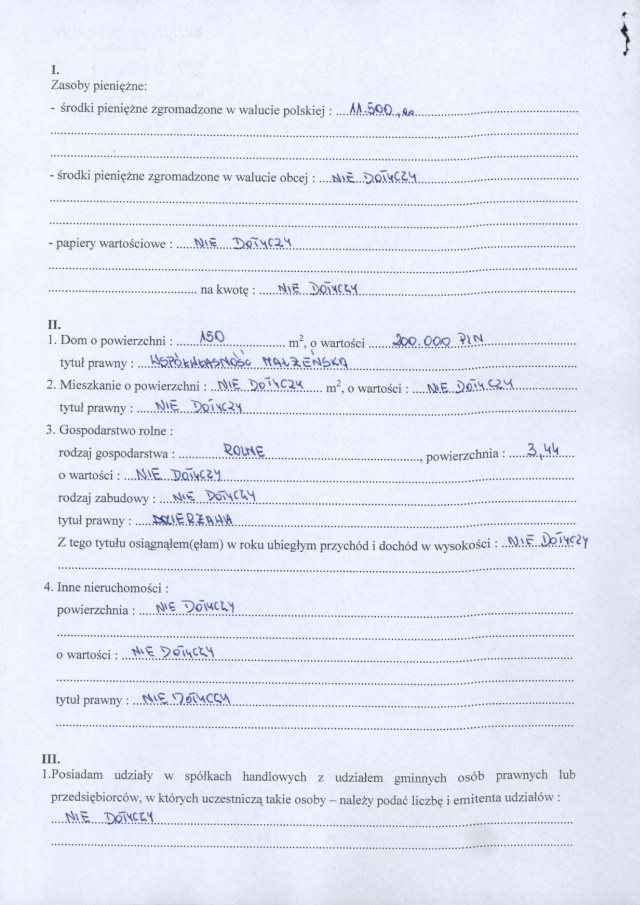 I.
Zasoby pieniężne:
- środki pieniężne zgromadzone w walucie polskiej : ....11.500,00....
- środki pieniężne zgromadzone w walucie obcej : ....NIE DOTYCZY....
- papiery wartościowe : ....NIE DOTYCZY....
.... na kwotę : ....NIE DOTYCZY....
II.
1. Dom o powierzchni : ....150.... m², o wartości ....200.000 PLN....
tytuł prawny : ....WSPÓŁWŁASNOŚĆ MAŁŻEŃSKA....
2. Mieszkanie o powierzchni : ..NIE DOTYCZY.... m², o wartości : ....NIE DOTYCZY....
tytuł prawny : ....NIE DOTYCZY....
3. Gospodarstwo rolne :
rodzaj gospodarstwa : ....ROLNE...., powierzchnia : ....3,44....
o wartości : ...NIE DOTYCZY....
rodzaj zabudowy : ....NIE DOTYCZY....
tytuł prawny : ....DZIERŻAWA....
Z tego tytułu osiągnąłem(ęłam) w roku ubiegłym przychód i dochód w wysokości : ..NIE DOTYCZY
4. Inne nieruchomości :
powierzchnia : ....NIE DOTYCZY....
o wartości : ...NIE DOTYCZY....
tytuł prawny : ...NIE DOTYCZY....
III.
1.Posiadam udziały w spółkach handlowych z udziałem gminnych osób prawnych lub
przedsiębiorców, w których uczestniczą takie osoby – należy podać liczbę i emitenta udziałów :
....NIE DOTYCZY....